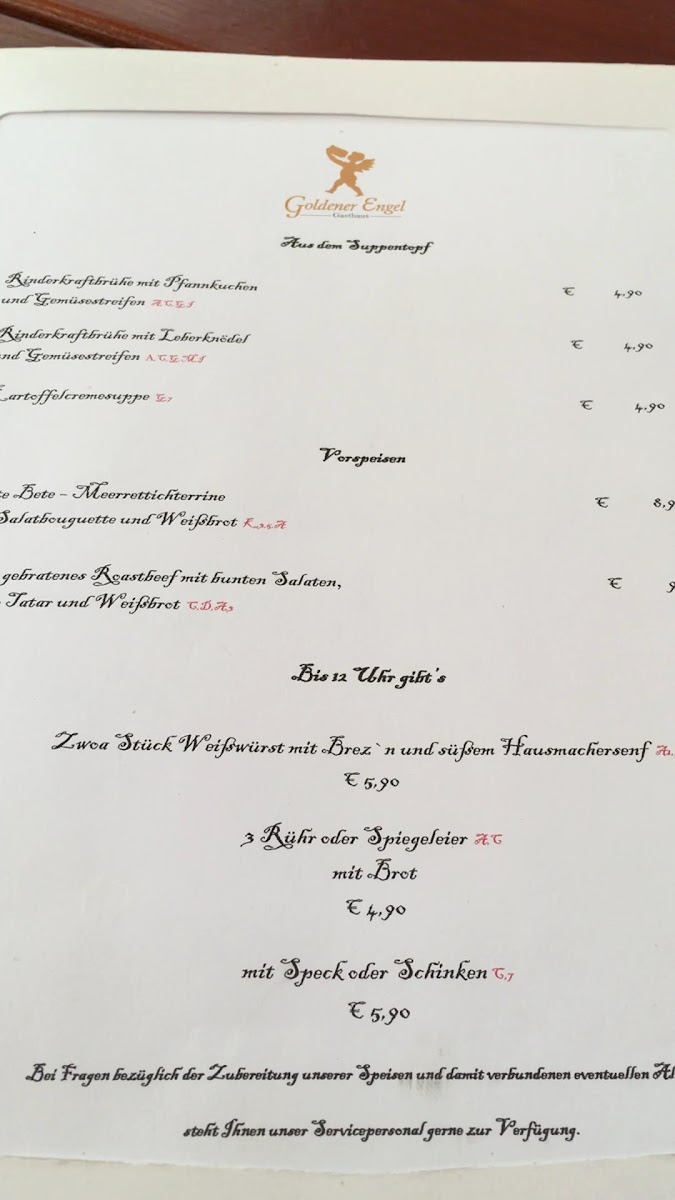 Goldener Engel
Gasthaus
Aus dem Suppentopf
Rinderkraftbrühe mit Pfannkuchen € 4,90
und Gemüsestreifen A,C,G,I
Rinderkraftbrühe mit Leberknödel € 4,90
nd Gemüsestreifen A,C,G,M,I
Kartoffelcremesuppe G,7 € 4,90
Vorspeisen
te Bete – Meerrettichterrine € 8,9
Salatbouguette und Weißbrot
gebratenes Roastbeef mit bunten Salaten, € 9
Tatar und Weißbrot C,D,A,9
Bis 12 Uhr gibt's
Zwoa Stück Weißwürst mit Brez`n und süßem Hausmachersenf
€ 5,90
3 Rühr oder Spiegeleier A,C
mit Brot
€ 4,90
mit Speck oder Schinken C,7
€ 5,90
Bei Fragen bezüglich der Zubereitung unserer Speisen und damit verbundenen eventuellen Al
steht Ihnen unser Servicepersonal gerne zur Verfügung.